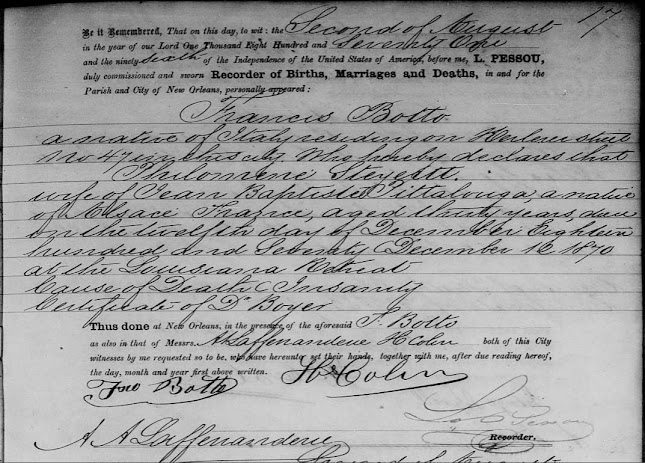 17
Be it Remembered, That on this day, to wit: the Second of August
in the year of our Lord One Thousand Eight Hundred and Seventy One
and the ninety-sixth of the Independence of the United States of America, before me, L. PESSOU,
duly commissioned and sworn Recorder of Births, Marriages and Deaths, in and for the
Parish and City of New Orleans, personally appeared:
Francis Botto
a native of Italy residing on street
No 47 in this city Who hereby declares that
Philomene
wife of Jean Baptiste Pittalouga, a native
of Alsace France, aged thirty years, died
on the twelfth day of December Eighteen
hundred and Seventy (December 12 1870
at the Louisiana Retreat
Cause of Death (Insanity
Certificate of Dr Boyer
Thus done at New Orleans, in the presence of the aforesaid F. Botto
as also in that of Messrs. A Laffenanderie H Colin both of this City
witnesses by me requested so to be, who have hereunto set their hands, together with me, after due reading hereof,
the day, month and year first above written.
Botto H Colin
A A Laffenanderie
Recorder.